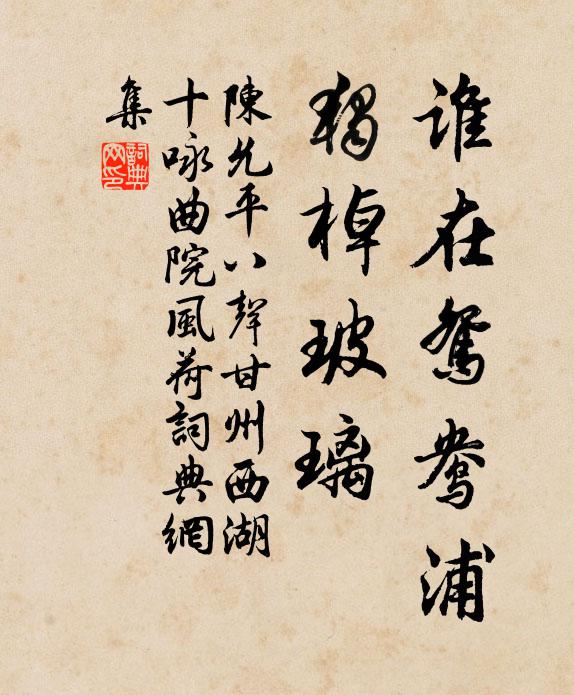 誰在鴛鴦浦
獨棹玻璃
陳允平八聲甘州西湖
十咏曲院風荷詞典網
集
詞典網印